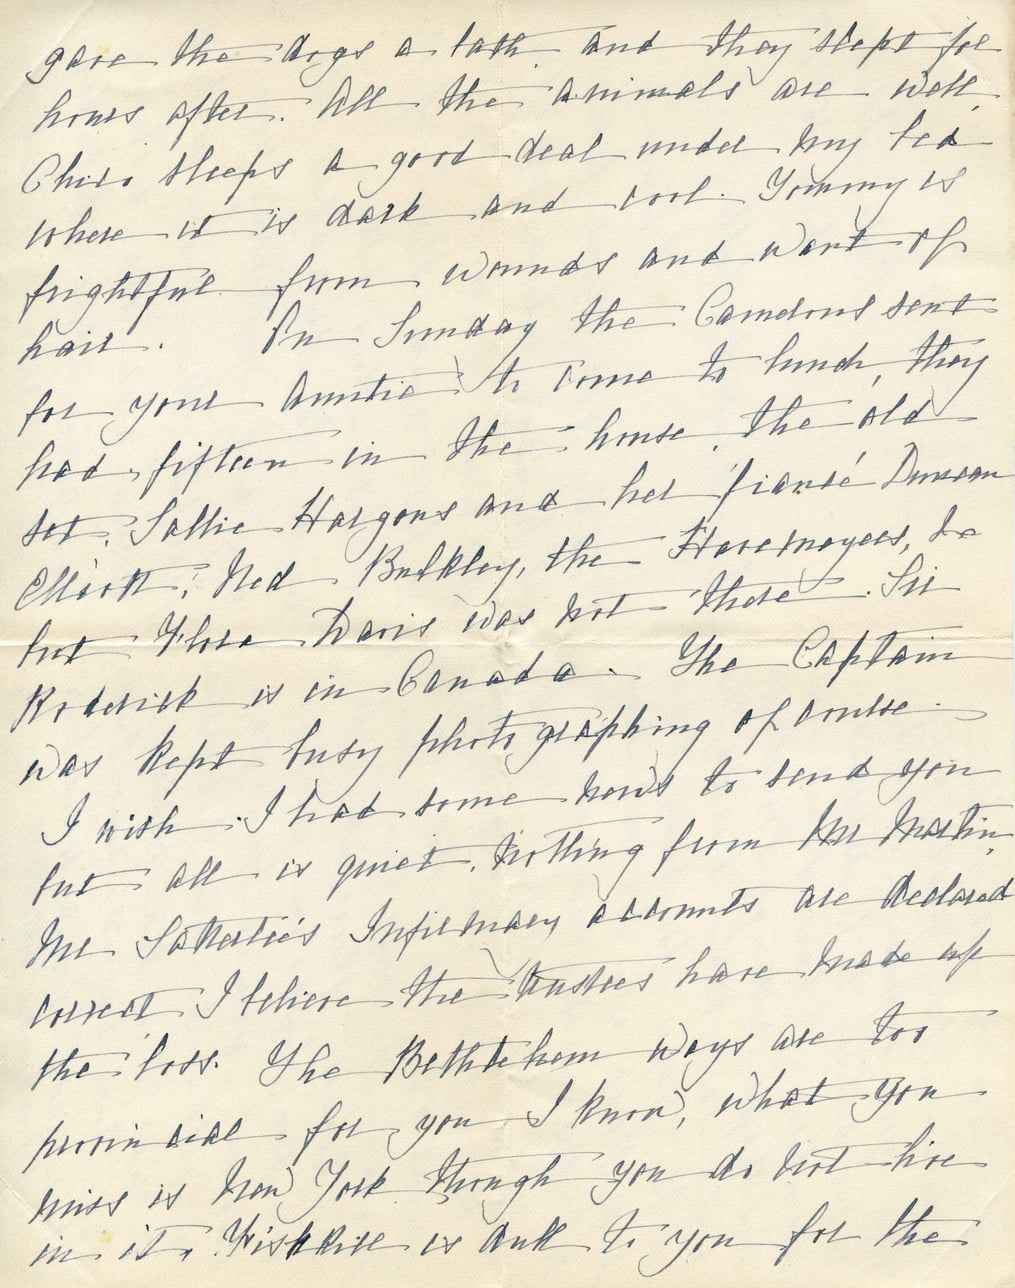 gave the dogs a bath and they slept for
hours after. All the animals are well.
Chico sleeps a good deal under my bed
where it is dark and cool. Tommy is
frightful from wounds and want of
hair. On Sunday the Camerons sent
for your Auntie to come to lunch, they
had fifteen in the house, the old
set, Sallie Hargous and her fiancé Duncan
Elliott, Ned Bulkley, the Havemeyers, &c
but Flora Davis was not there. Sir
Roderick is in Canada. The Captain
was kept busy photographing of course.
I wish I had some news to send you
but all is quiet. Nothing from Mr Martin,
Mr Satterlee's Infirmary accounts are declared
correct I believe the trustees have made up
the loss. The Bethlehem ways are too
provincial for you I know, what you
miss is New York though you do not live
in it. Fishkill is dull to you for the